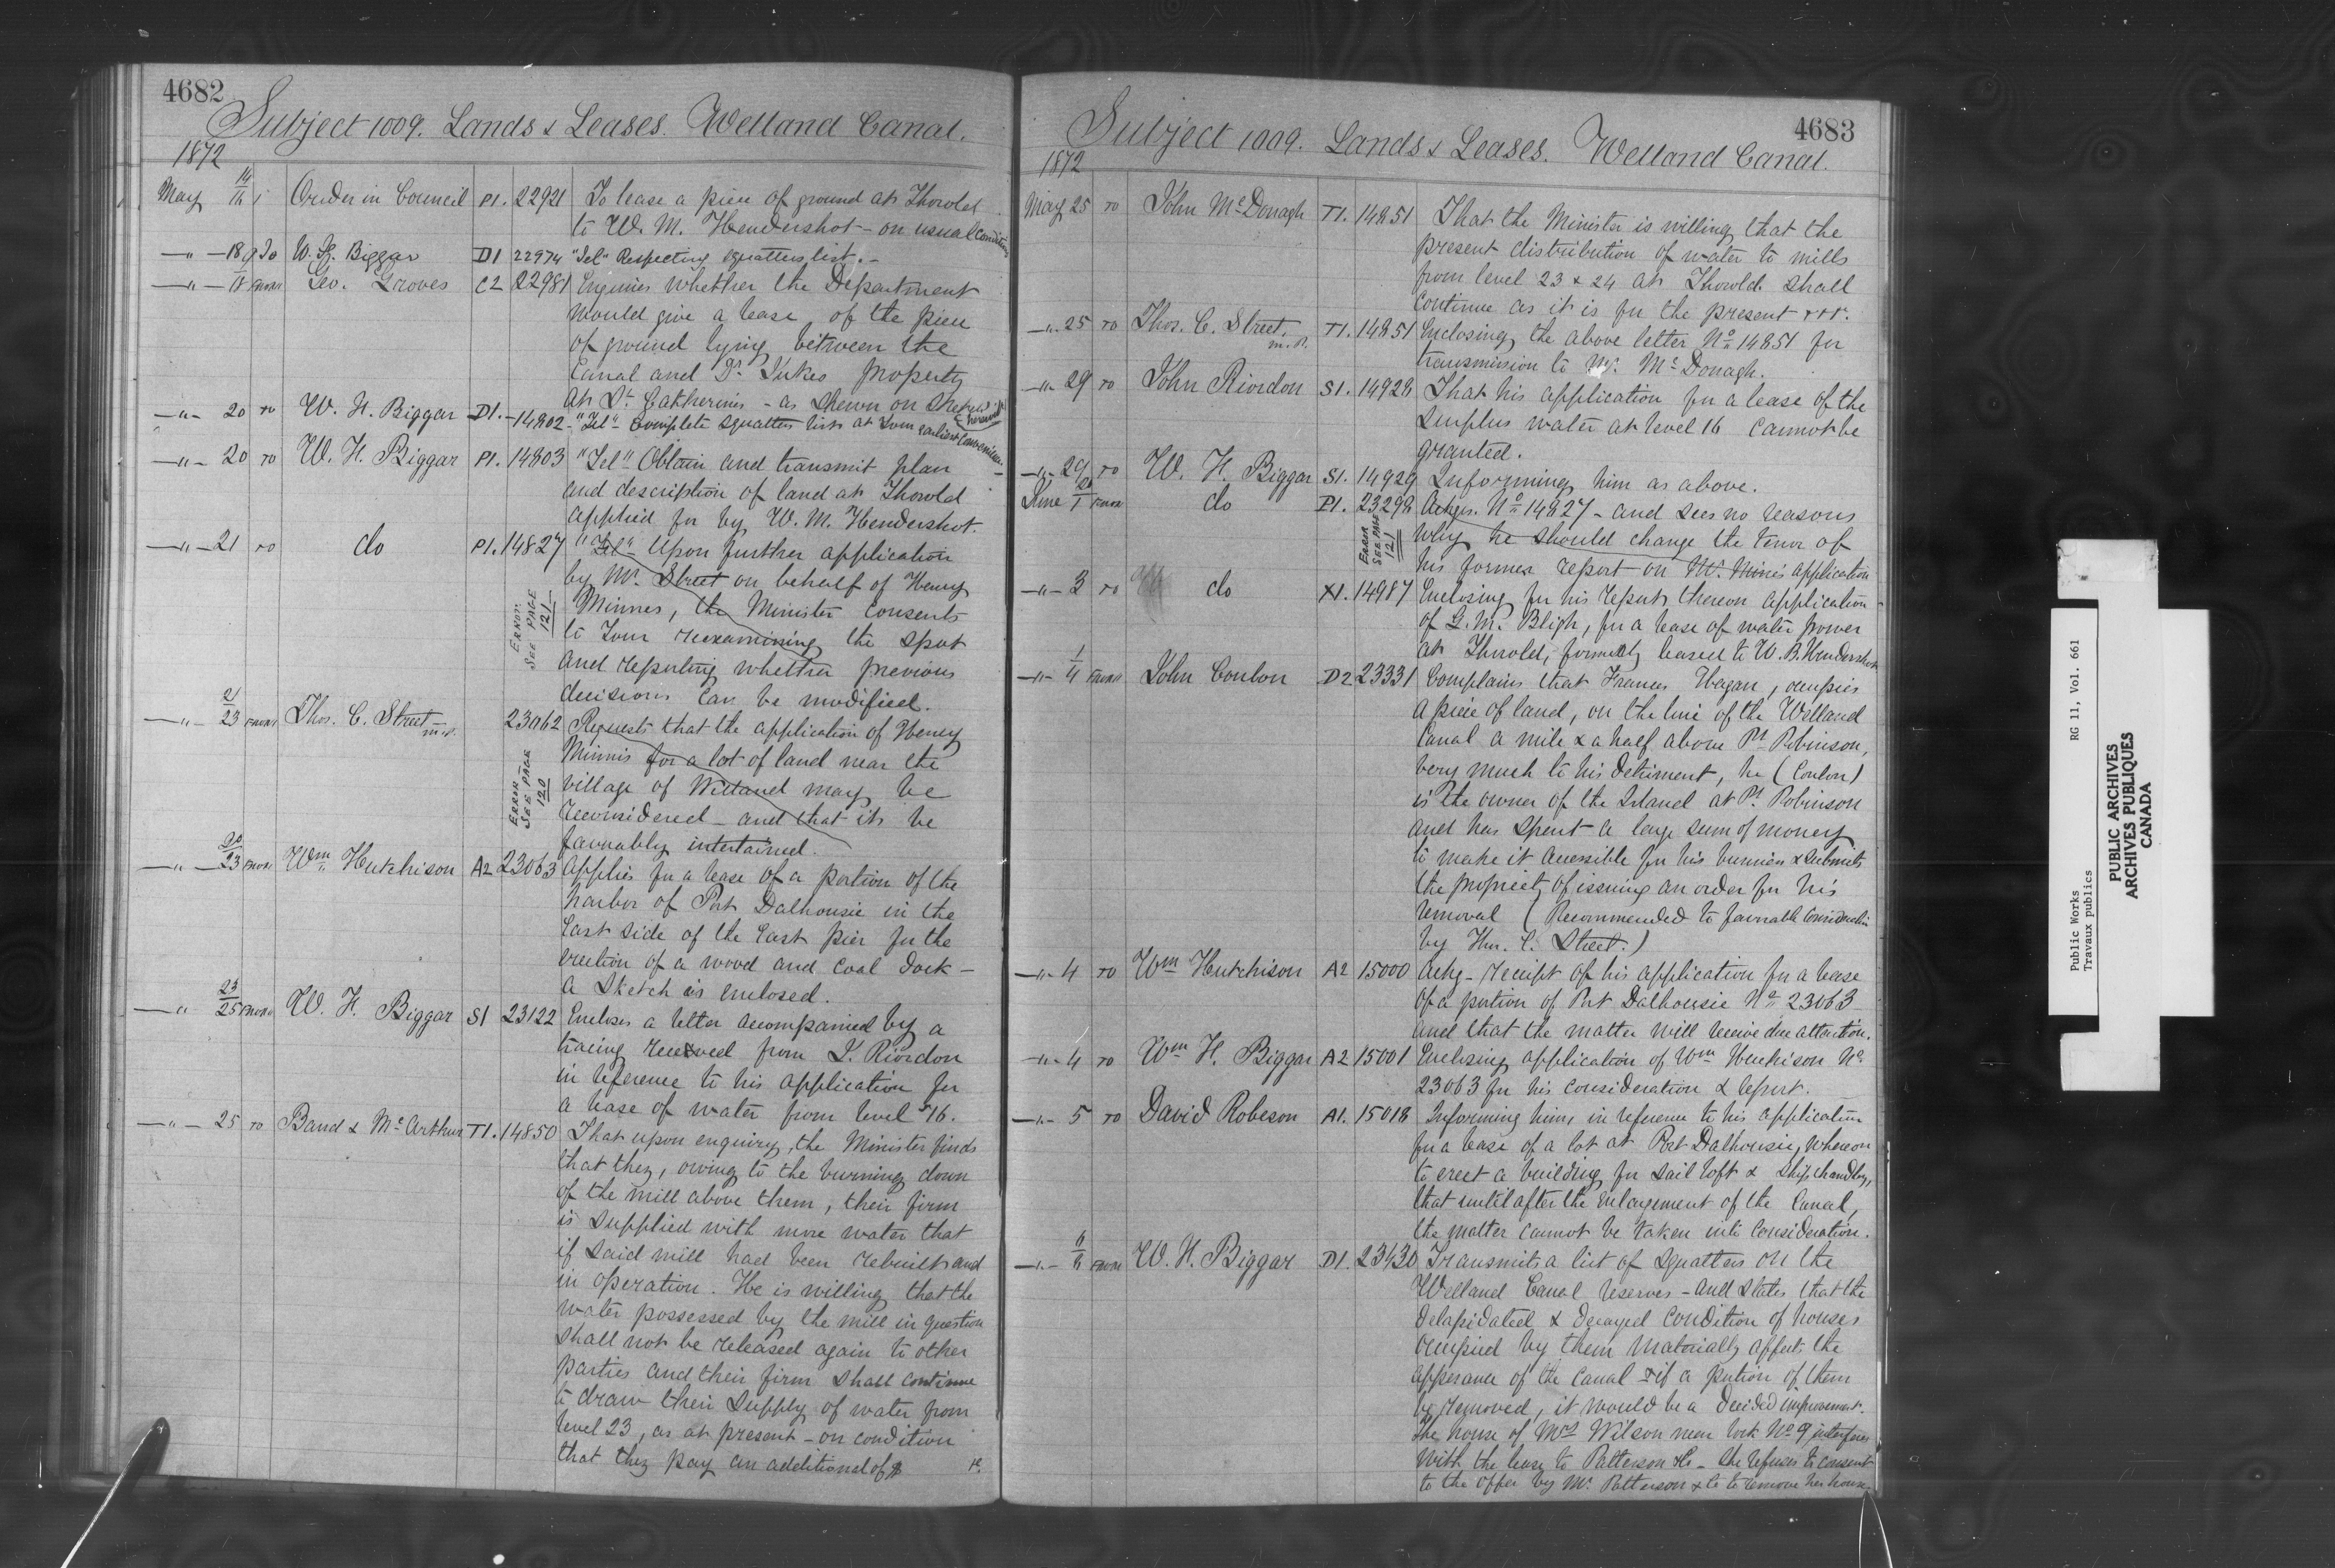 4682
Subject 1009. Lands & Leases. Welland Canal.
1872
May 14/16 Order in Council P1. 22921 To lease a piece of ground at Thorold
to W. M. Hendershot - on usual conditions
-"- 18 W. H. Biggar D1 22974 "Tel" Respecting squatters list.-
-"- 18 from Geo. Groves C2 22981 Enquires whether the Department
would give a lease, of the piece
of ground lying between the
Canal and Dr. Jukes property
at St. Catherines - as shewn on sketch herewith
-"- 20 to W. H. Biggar D1. -14802- "Tel" Complete squatters list at your earliest convenience.
-"- 20 to W. H. Biggar P1. 14803 "Tel" Obtain and transmit plan
and description of land at Thorold
applied for by W. M. Hendershot.
-"- 21 to do P1. 14827 "Tel" Upon further application
by Mr. Street on behalf of Henry
Minnes, the Minister consents
to your reexamining the spot
and reporting whether previous
decisions can be modified.
ERROR.
SEE PAGE
121
-"- 21/23 from Thos. C. Street M.P. 23062 Requests that the application of Henry
Minnis for a lot of land near the
village of Welland may be
reconsidered - and that it be
favuably intertained.
ERROR -
SEE PAGE
120
-"- 20/23 from Wm Hutchison A2 23063 Applies for a lease of a portion of the
harbor of Port Dalhousie in the
East side of the East pier for the
erection of a wood and coal dock -
a sketch is enclosed.
-"- 23/25 from W. H. Biggar S1 23122 Encloses a letter accompanied by a
tracing received from J. Riordon
in reference to his application for
a lease of water from level 16.
-"- 25 to Band & McArthur T1. 14850 That upon enquiry, the Minister finds
that they, owing to the burning down
of the mill above them, their firm
is supplied with more water that
if said mill had been rebuilt and
in operation. He is willing that the
water possessed by the mill in question
shall not be released again to other
parties and their firm shall continue
to draw their supply of water from
level 23, as at present - on condition
that they pay an additional of $
4683
Subject 1009. Lands & Leases. Welland Canal.
1872
May 25 to John McDonagh T1. 14851 That the Minister is willing that the
present distribution of water to mills
from level 23 & 24 at Thorold shall
continue as it is for the present &&&.
-"- 25 to Thos. C. Street M.P. T1. 14851 Enclosing the above letter No 14851 for
transmission to Mr. McDonagh.
-"- 29 to John Riordon S1. 14928 That his application for a lease of the
surplus water at level 16 cannot be
granted.
-"- 29 to W. H. Biggar S1. 14929 Informing him as above.
June 1 from do P1. 23298 Ackges. No 14827 - and sees no reasons
why he should change the tenor of
his former report on Mr. Minis application
ERROR
SEE PAGE
121
-"- 3 to do X1. 14987 Enclosing for his report thereon application
of G. M. Bligh, for a lease of water power
at Thorold, formerly leased to W. B. Hendershot
-"- 1/4 from John Conlon D2 23331 Complains that Frances Hagan, occupies
a piece of land, on the line of the Welland
Canal a mile & a half above Pt Robinson,
very much to his detriment, he (Conlon)
is the owner of the Island at Pt. Robinson
and has spent a large sum of money
to make it accessible for his business & submits
the propriety of issuing an order for his
removal (Recommended to favorable consideration
by Thos. C. Street.)
-"- 4 to Wm Hutchison A2 15000 Ackg- receipt of his application for a lease
of a portion of Port Dalhousie No 23063
and that the matter will receive due attention.
-"- 4 to Wm H. Biggar A2 15001 Enclosing application of Wm Hutchison No
23063 for his consideration & report.
-"- 5 to David Robeson A1. 15018 Informing him, in reference to his application
for a lease of a lot at Port Dalhousie, whereon
to erect a building for sail loft & ship chandlery,
that until after the Enlargement of the Canal,
the matter cannot be taken into consideration.
-"- 6/6 from W. H. Biggar D1. 23430 Transmits a list of squatters on the
Welland Canal reserves - and states that the
delapidated & decayed condition of houses
occupied by them materially affects the
apperance of the canal & if a portion of them
be removed, it would be a decided improvement.
The house of Mrs Wilson near lock No 9 interferes
with the lease to Patterson & Co - she refuses to consent
to the offer by Mr. Patterson & Co to remove her house.
Public Works RG 11, Vol. 661
Travaux publics
PUBLIC ARCHIVES
ARCHIVES PUBLIQUES
CANADA